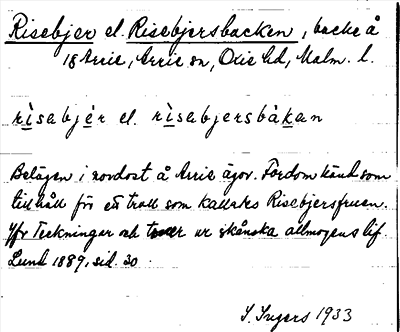 Risebjer el. Risebjersbacken, backe å
18 Arrie, Arrie sn, Oxie hd, Malm. l.
rìsebjér el. rìsebjersbàkan
Belägen i nordost å Arrie ägor. Fordom känd som
tillhåll för ett troll som kallades Risebjersfruen.
Jfr Teckningar och toner ur skånska allmogens lif
Lund 1889, sid. 30
S. Ingers 1933